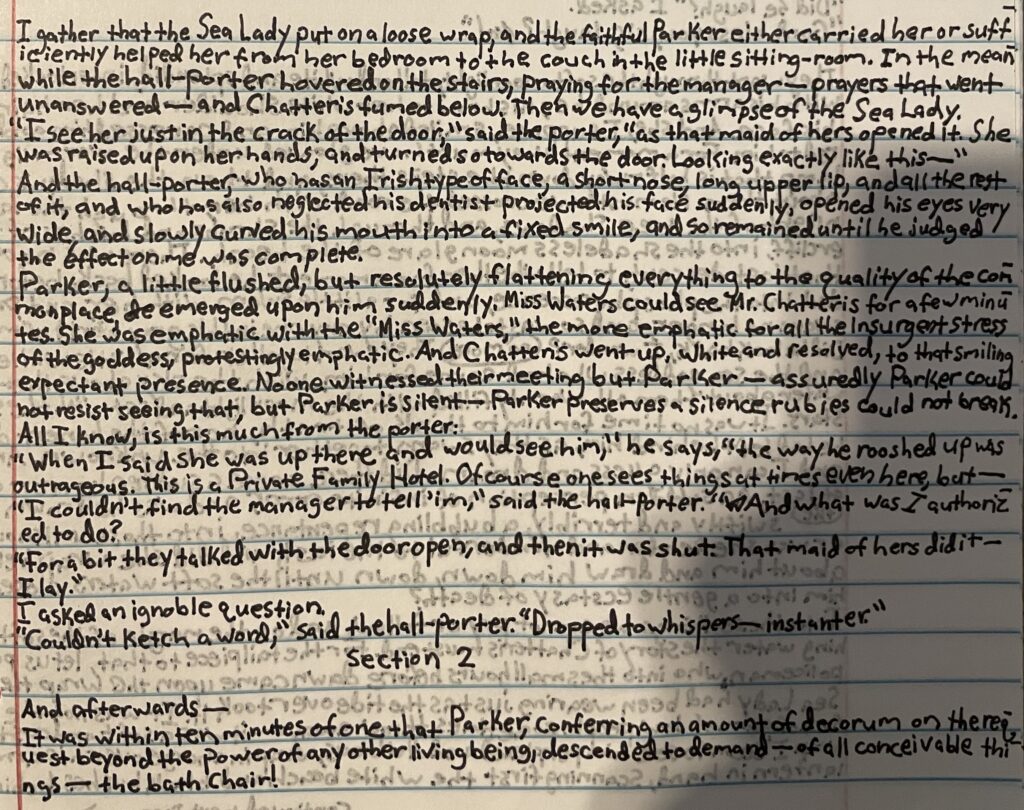 I gather that the Sea Lady put on a loose wrap, and the faithful Parker either carried her or suff-
iciently helped her from her bedroom to the couch in the little sitting-room. In the mean-
while the hall-porter hovered on the stairs, praying for the manager—prayers that went
unanswered—and Chatteris fumed below. Then we have a glimpse of the Sea Lady.
"I see her just in the crack of the door," said the porter, "as that maid of hers opened it. She
was raised upon her hands, and turned so towards the door. Looking exactly like this—"
And the hall-porter, who has an Irish type of face, a short nose, long upper lip, and all the rest
of it, and who has also neglected his dentist projected his face suddenly, opened his eyes very
wide, and slowly curved his mouth into a fixed smile, and so remained until he judged
the effect on me was complete.
Parker, a little flushed, but resolutely flattening everything to the quality of the com-
monplace de emerged upon him suddenly. Miss Waters could see Mr. Chatteris for a few minu-
tes. She was emphatic with the "Miss Waters," the more emphatic for all the insurgent stress
of the goddess, protestingly emphatic. And Chatteris went up, white and resolved, to that smiling
expectant presence. No one witnessed their meeting but Parker—assuredly Parker could
not resist seeing that, but Parker is silent—Parker preserves a silence rubies could not break.
All I know, is this much from the porter:
"When I said she was up there and would see him," he says, "the way he rooshed up was
outrageous. This is a Private Family Hotel. Of course one sees things at times even here, but—
"I couldn't find the manager to tell 'im," said the hall-porter. "And what was I authoriz-
ed to do?
"For a bit they talked with the door open, and then it was shut. That maid of hers did it—
I lay."
I asked an ignoble question.
"Couldn't ketch a word," said the hall-porter. "Dropped to whispers—instanter."
Section 2
And afterwards—
It was within ten minutes of one that Parker, conferring an amount of decorum on the req-
uest beyond the power of any other living being, descended to demand—of all conceivable thi-
ngs—the bath Chair!